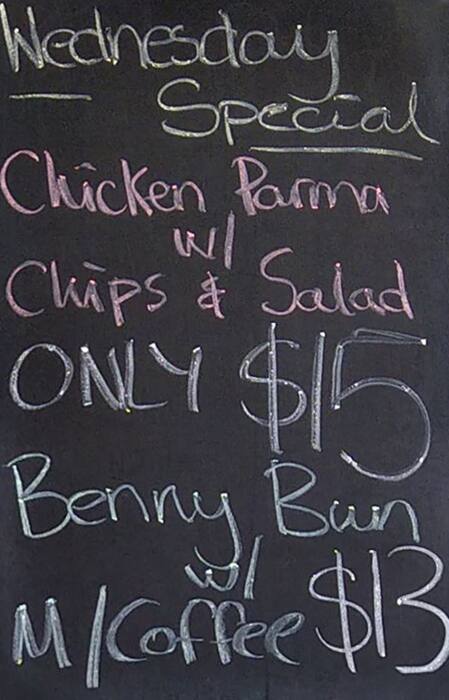 Wednesday
Special
Chicken Parma
w/
Chips & Salad
ONLY $15
Benny Bun
w/
M/Coffee $13